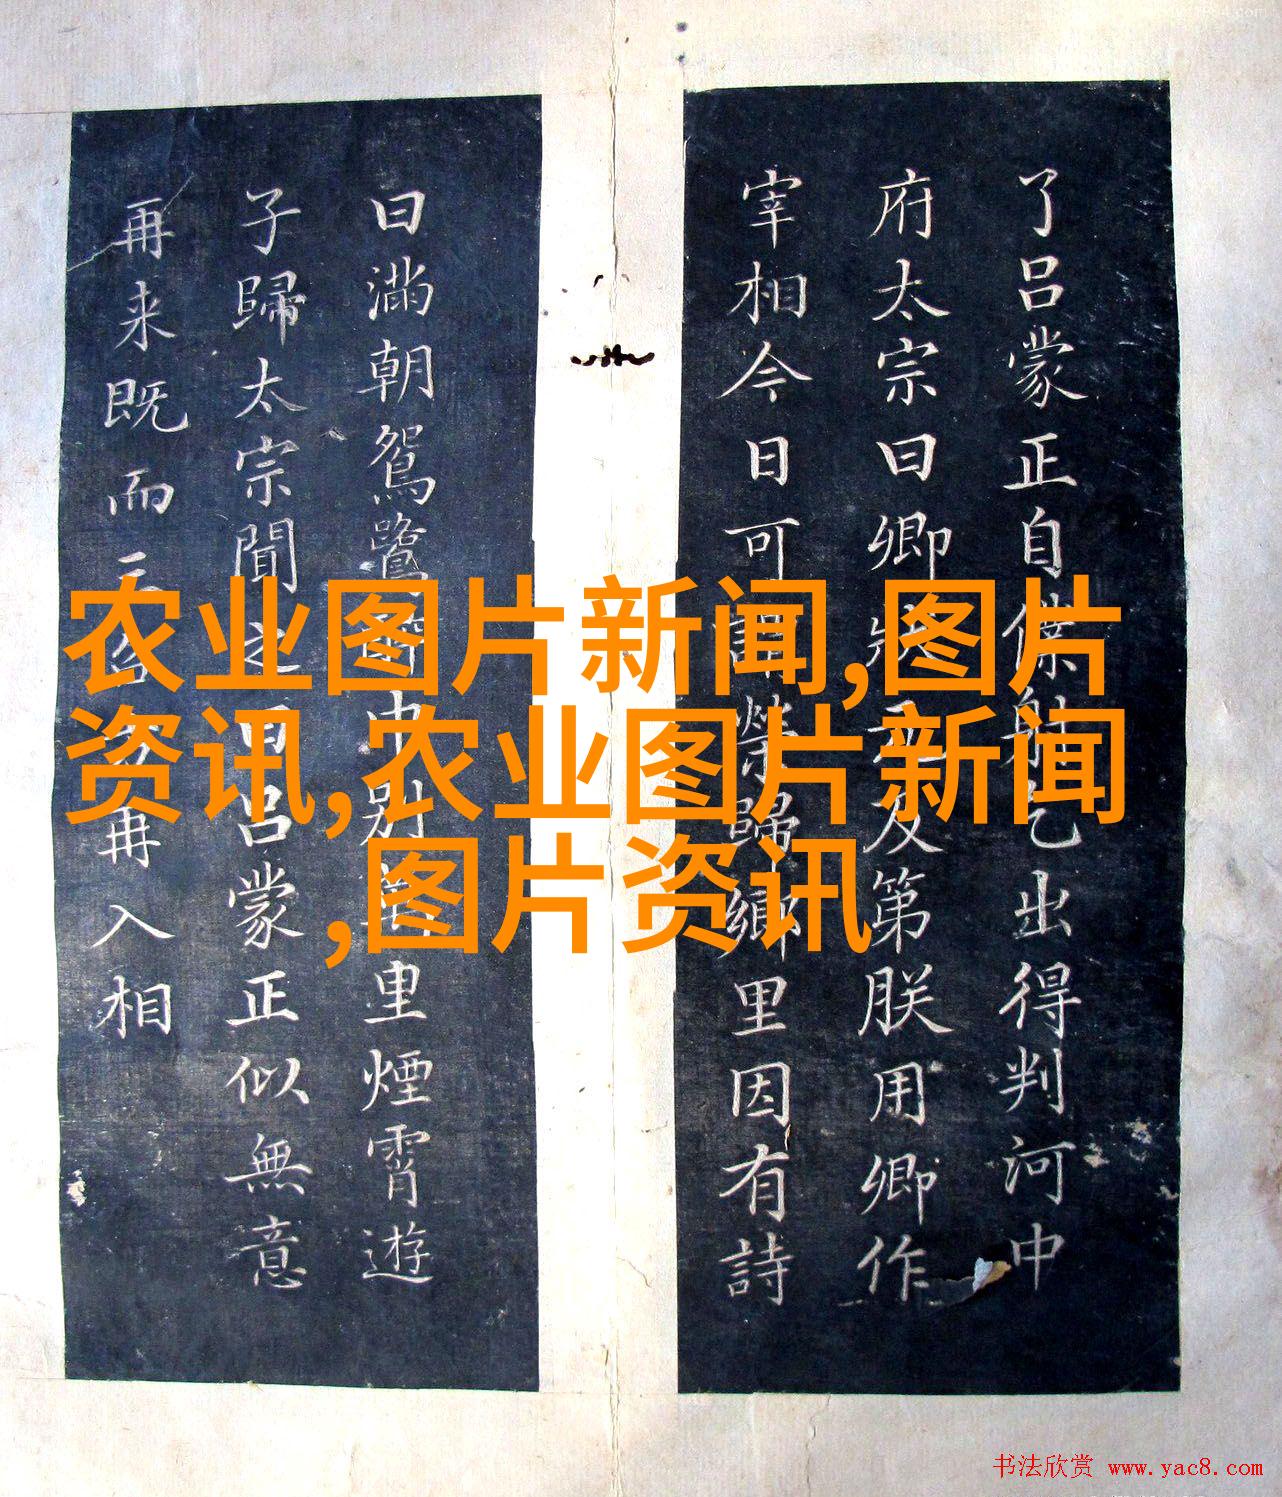 了吕蒙正自僕射乞出得判河中
府太宗曰卿狀元及第朕用卿作
宰相今日可謂榮歸鄉里因有詩
曰滿朝鴛鷺 中別 里煙霄遊
子歸太宗聞之曰吕蒙正似無意
再来既而三 再入相
农业图片新闻,图片
资讯,农业图片新闻
,图片资讯
书法欣赏 www.yac8.com